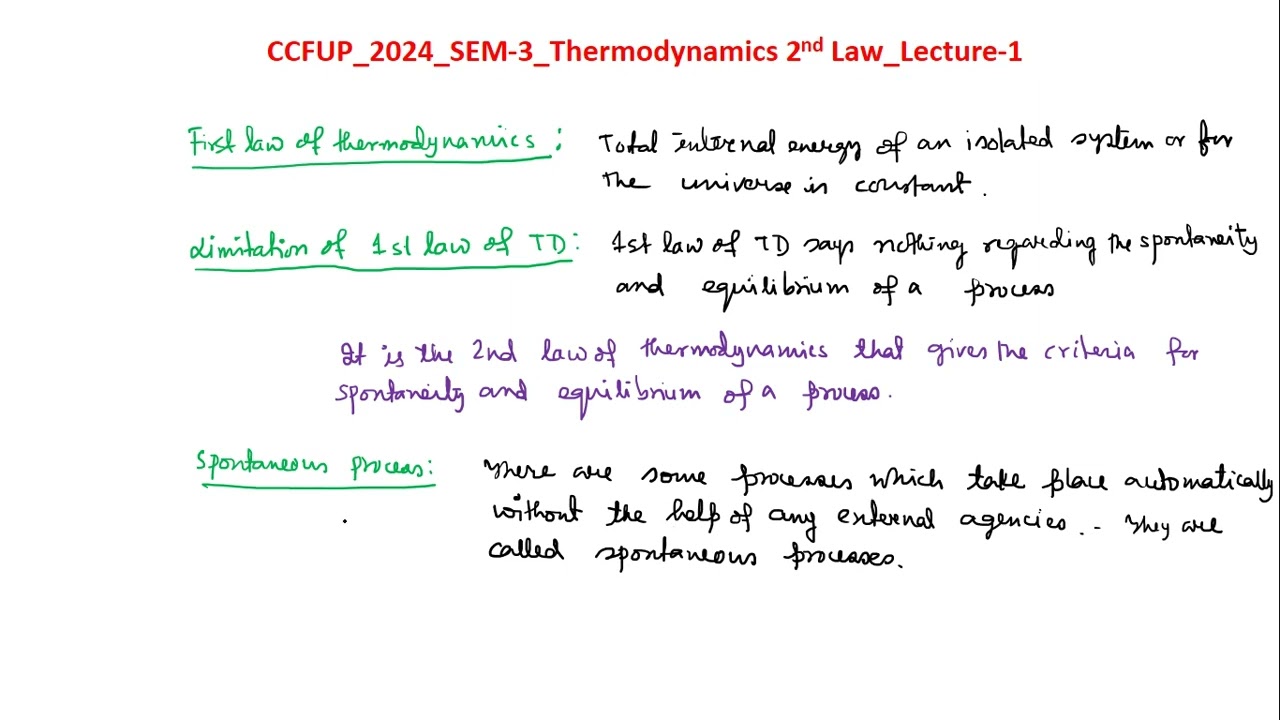 CCFUP_2024_SEM-3_Thermodynamics 2nd Law_Lecture-1
First law of thermodynamics : Total internal energy of an isolated system or for
the universe is constant.
Limitation of 1st law of TD: 1st law of TD says nothing regarding the spontaneity
and equilibrium of a process
It is the 2nd law of thermodynamics that gives the criteria for
spontaneity and equilibrium of a process.
Spontaneous process: There are some processes which take place automatically
without the help of any external agencies. - They are
called spontaneous processes.